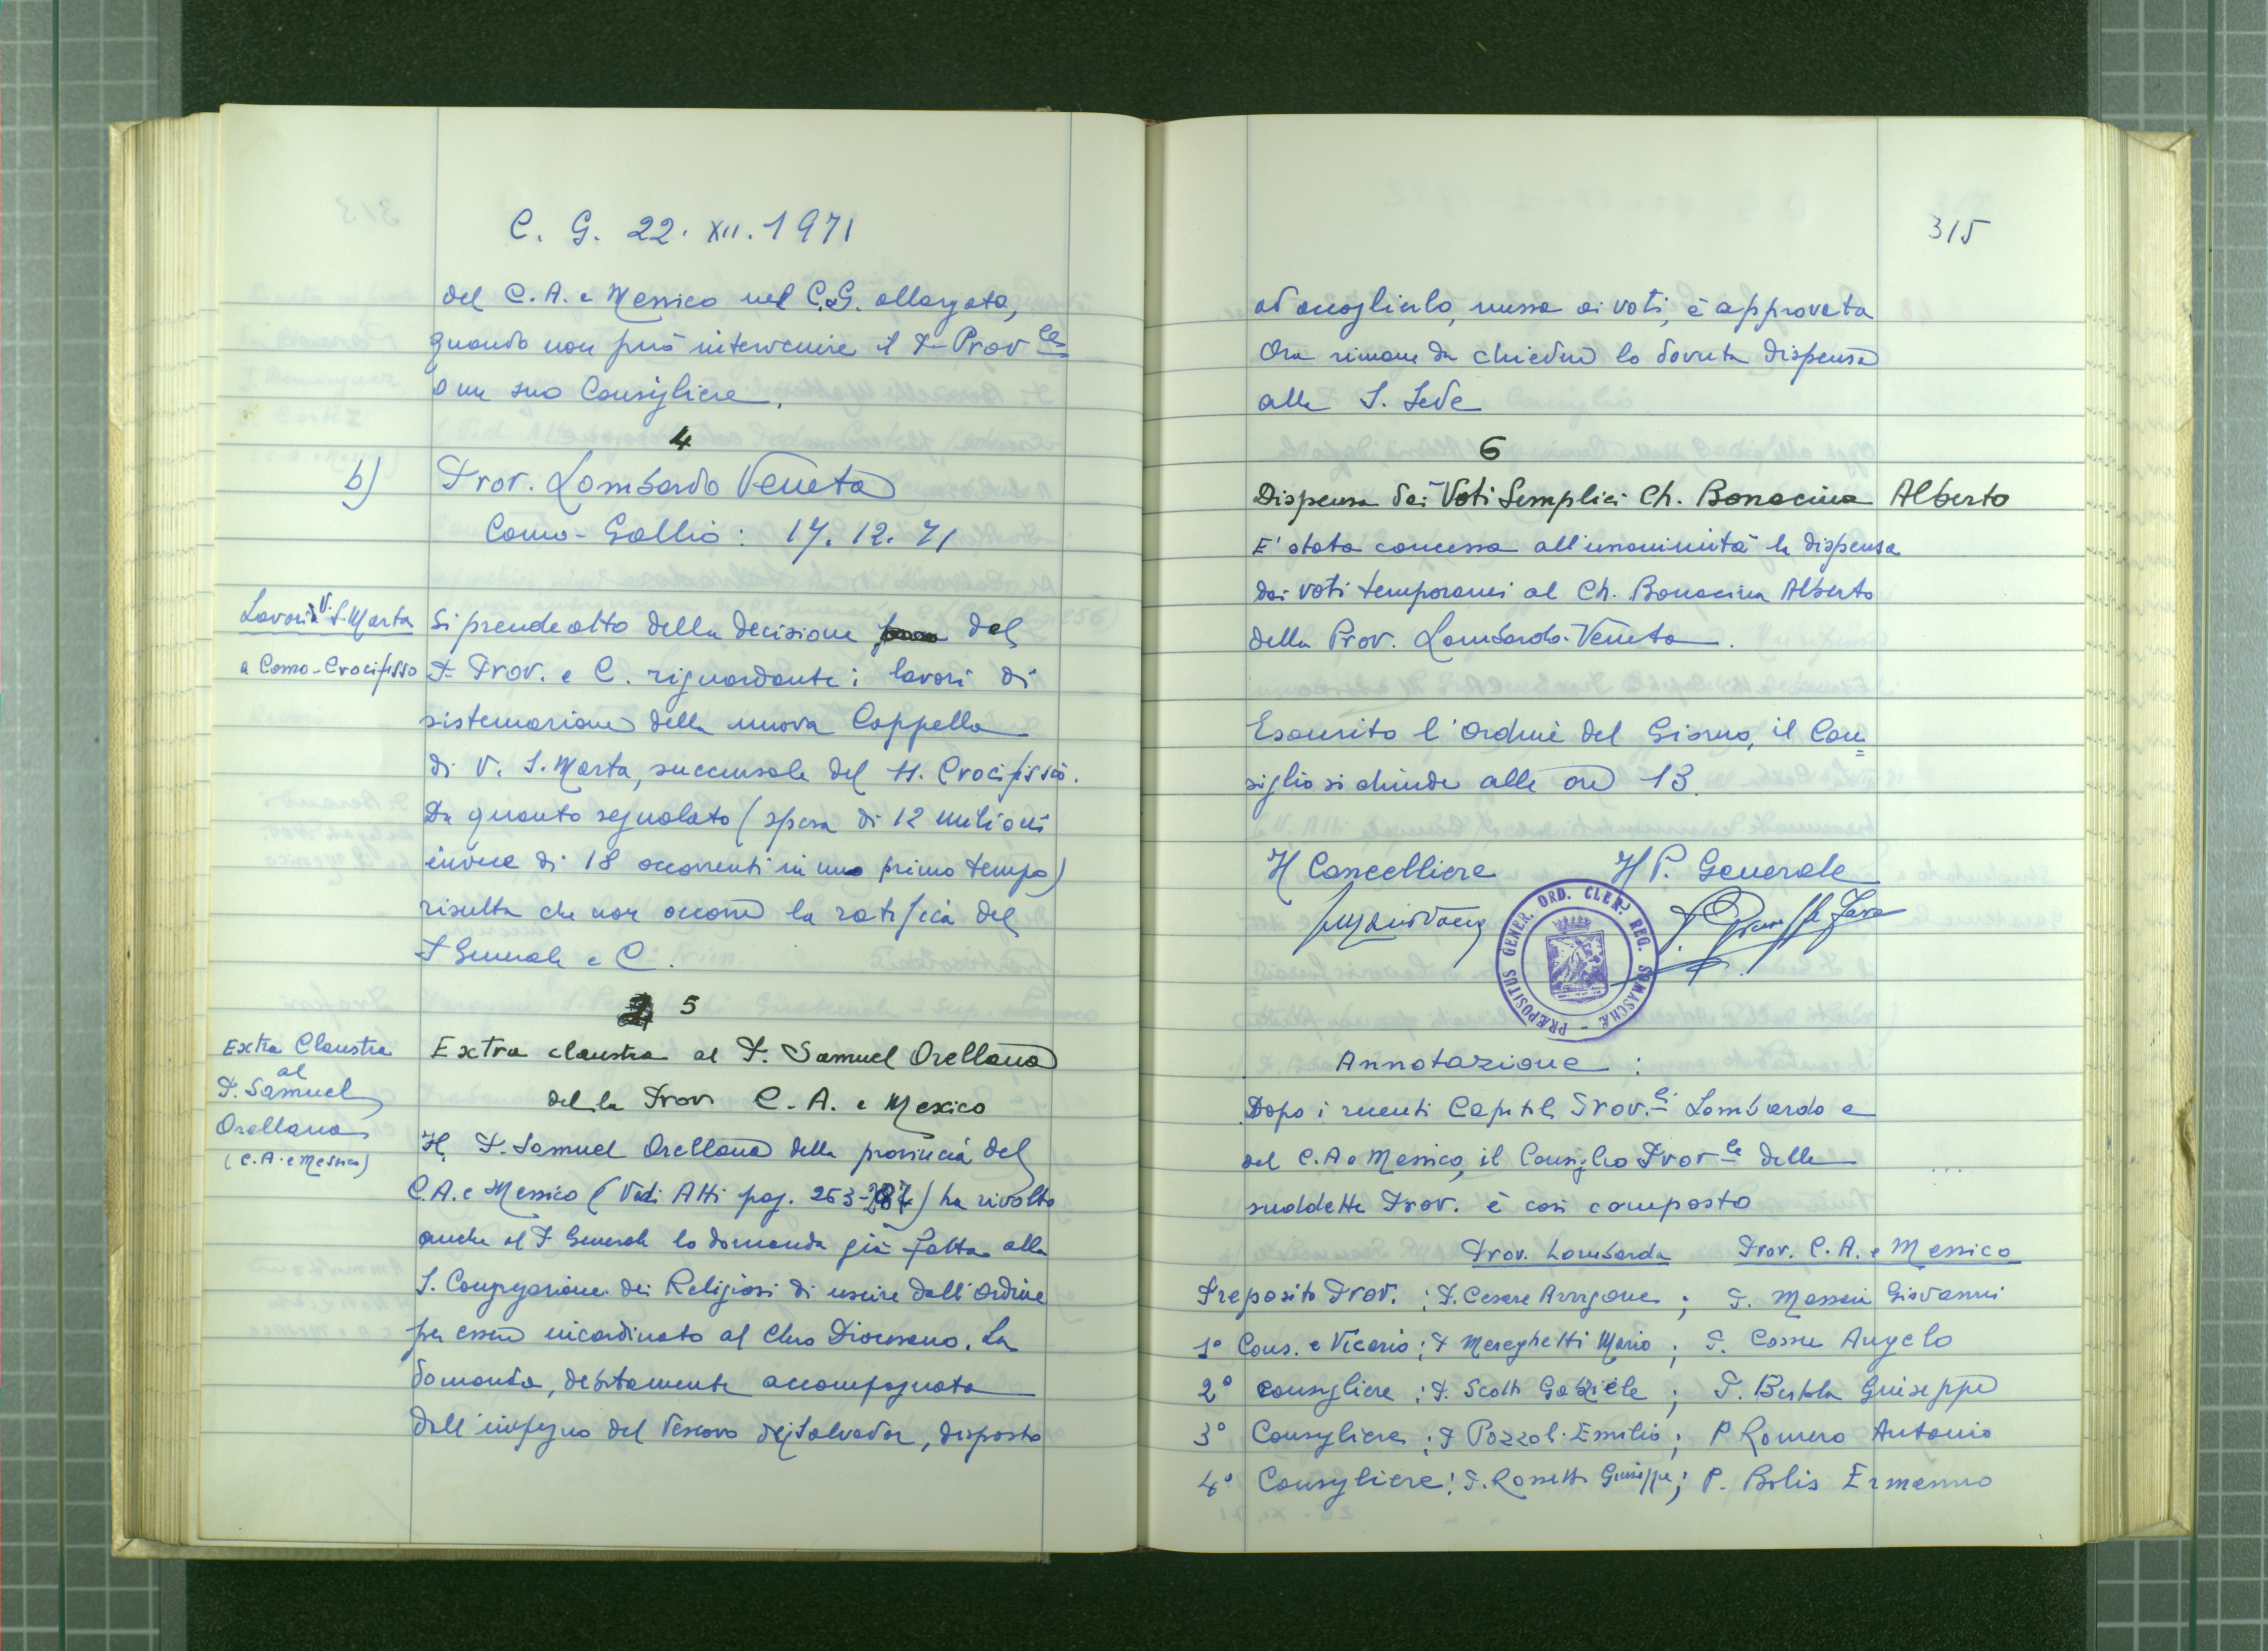 C. G. 22. XII. 1971
del C. A. e Messico nel C.G. allargato,
quando non può intervenire il P. Prov.le
o un suo Consigliere.
4
b) Prov. Lombardo Veneta
Como-Gallio: 17.12.71
Lavori V. S. Marta
a Como-Crocifisso
Si prende atto della decisione del
P. Prov. e C. riguardante i lavori di
sistemazione della nuova Cappella
di V. S. Marta, succursale del SS. Crocifisso.
Da quanto segnalato (spesa di 12 milioni
invece di 18 occorrenti in uno primo tempo)
risulta che non occorre la ratifica del
P. Generale e C.
5
Extra Claustra
al
P. Samuel
Orellana
(C.A. e Messico)
Extra claustra al P. Samuel Orellana
della Prov. C. A. e Mexico
Il P. Samuel Orellana della provincia del
C.A. e Messico (Vedi Atti pag. 253-287) ha rivolto
anche al P. Generale la domanda già fatta alla
S. Congregazione dei Religiosi di uscire dall'Ordine
per essere incardinato al Clero Diocesano. La
domanda, debitamente accompagnata
dall'impegno del Vescovo del Salvador, disposto
315
ad accoglierlo, messa ai voti, è approvata
Ora rimane da chiedere la dovuta dispensa
alla S. Sede
6
Dispensa dai Voti Semplici Ch. Bonacina Alberto
E' stata concessa all'unanimità la dispensa
dai voti temporanei al Ch. Bonacina Alberto
della Prov. Lombardo-Veneta.
Esaurito l'Ordine del Giorno, il Con=
siglio si chiude alle ore 13.
Il Cancelliere Il P. Generale
PRÆPOSITUS GENER. ORD. CLER. REG. SOMASCHÆ
Annotazione:
Dopo i recenti Capitoli Prov.li Lombardo e
del C.A e Messico, il Consiglio Prov.le delle
suddette Prov. è così composto
Prov. Lombarda Prov. C. A. e Messico
Preposito Prov.: P. Cesare Arrigoni; P. Massaia Giovanni
1° Cons. e Vicario: P. Mereghetti Mario; P. Cossu Angelo
2° Consigliere: P. Scotti Gabriele; P. Bertola Giuseppe
3° Consigliere: P. Pozzoli Emilio; P. Romero Antonio
4° Consigliere: P. Rossetti Giuseppe; P. Bolis Ermanno